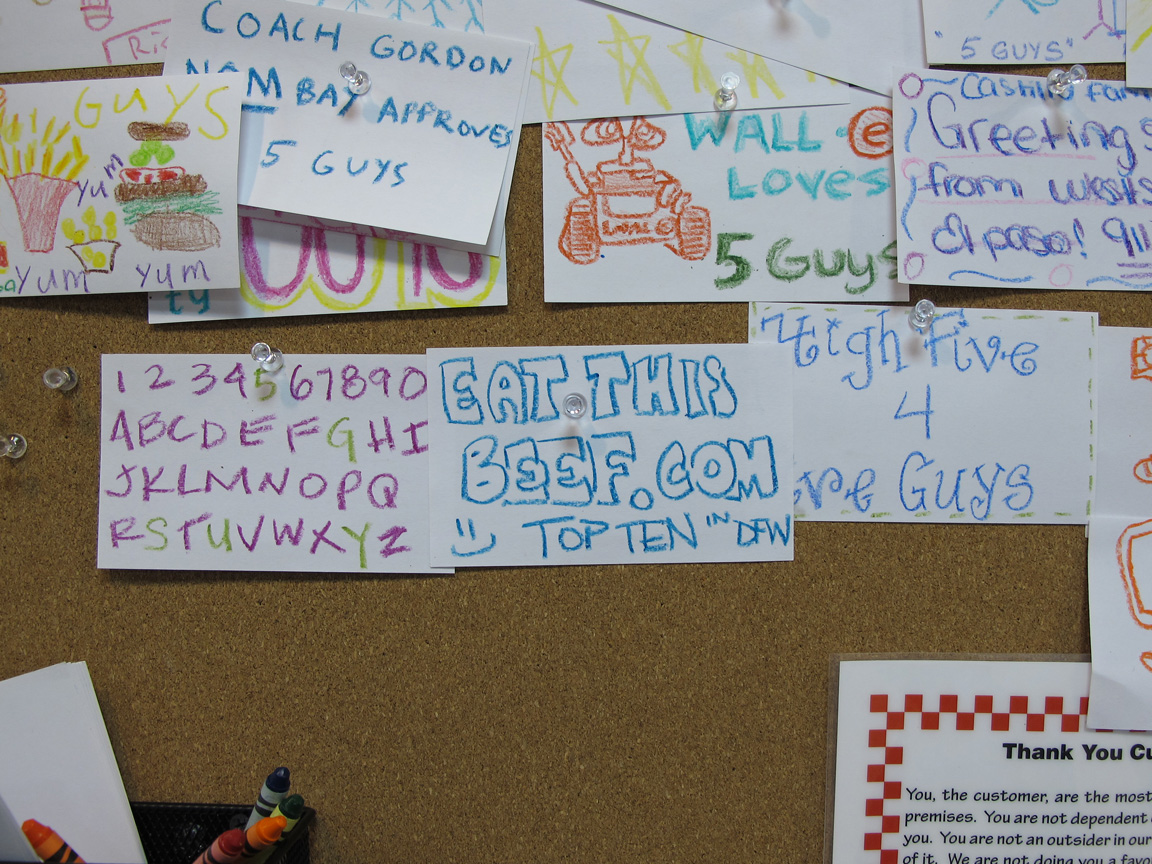 COACH GORDON
BOMBAY APPROVES
5 GUYS
"5 GUYS"
GUYS
YUM
YUM
YUM
ty
WALL·e
Loves
5 Guys
Greetings
from
el paso!
High Five
4
Guys
1234567890
ABCDEFGHI
JKLMNOPQ
RSTUVWXYZ
EAT THIS
BEEF.COM
TOP TEN IN DFW
Thank You
You, the customer, are the most
premises. You are not dependent
you. You are not an outsider in our
of it. We are not doing you a